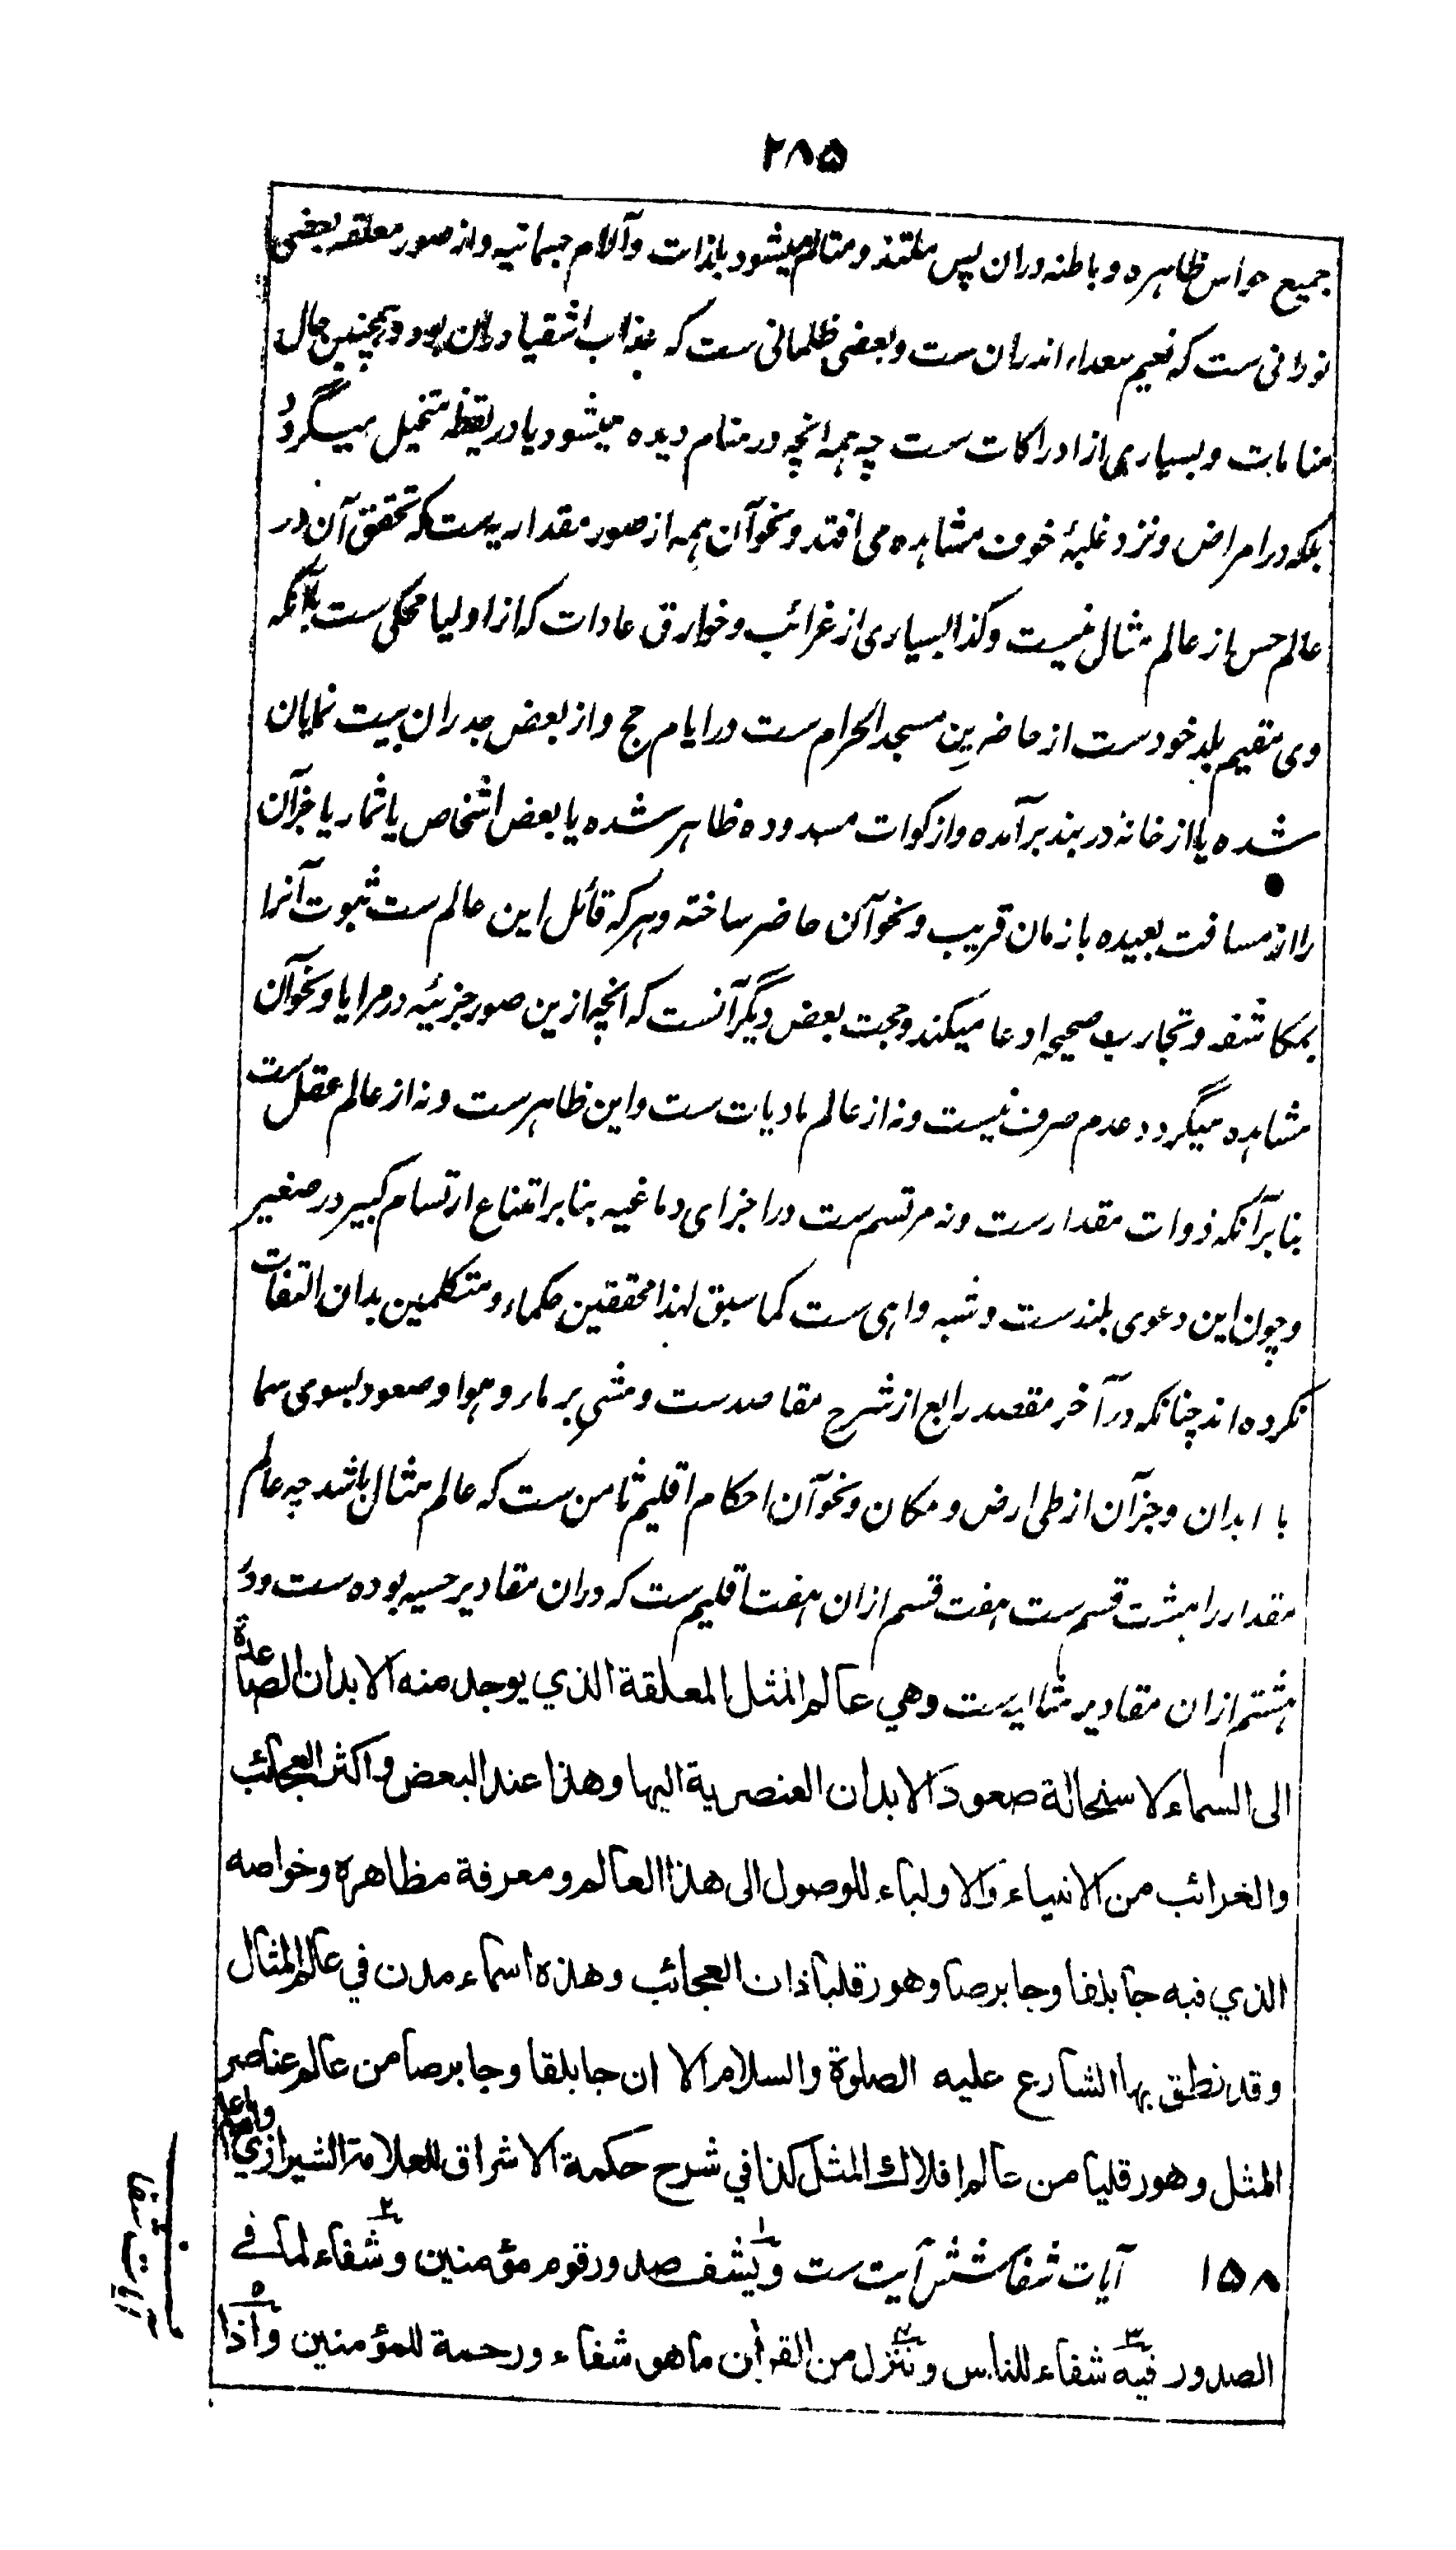 ۲۸۵
جمیع حواس ظاهره و باطنه دران پس ملتذ و متالم میشود بلذات وآلام جسمانیه واز صور معلقه بعضی
نورانی ست که نعیم سعداء اندران ست وبعضی ظلمانی ست که عذاب اشقیا دران بود وهمچنین حال
منامات وبسیاری از ادراکات ست چه همه انچه در منام دیده میشود یا در یقظه متخیل میگردد
بلکه در امراض ونزد غلبۀ خوف مشاهده می افتد ونحو آن همه از صور مقداریه ست که تحقق آن در
عالم حس از عالم مثال نیست وکذا بسیاری از غرائب وخوارق عادات که از اولیا محکی ست بآنکه
وی مقیم بلد خودست از حاضرین مسجد الحرام ست در ایام حج واز بعض جدران بیت نمایان
شده یا از خانۀ در بند برآمده واز کوات مسدوده ظاهر شده یا بعض اشخاص یا ثمار یا غیر آن
را از مسافت بعیده بازمان قریب ونحو آن حاضر ساخته وهر که قائل این عالم ست ثبوت آنرا
بمکاشفه وتجارب صحیحه ادعا میکند وحجت بعض دیگر آنست که انچه ازین صور جزئیه در مرایا ونحو آن
مشاهده میگردد عدم صرف نیست ونه از عالم مادیات ست واین ظاهرست ونه از عالم عقل ست
بنابر آنکه ذوات مقدارست ونه مرتسم ست در اجزای دماغیه بنابر امتناع ارتسام کبیر در صغیر
وچون این دعوی بلندست وشبه واهی ست کما سبق لهذا محققین حکماء ومتکلمین بدان التفات
نکرده اند چنانکه در آخر مقصد رابع از شرح مقاصدست ومشی بر ماء وهوا وصعود بسوی سما
با ابدان وجز آن از طی ارض ومکان ونحو آن احکام اقلیم ثامن ست که عالم مثال باشد چه عالم
مقدار را هشت قسم ست هفت قسم ازان هفت اقلیم ست که دران مقادیر حسیه بوده ست ودر
هشتم ازان مقادیر مثالیه ست وهي عالم المثل المعلقة الذي يوجد منه الابدان الصاعدة
الى السماء لاستحالة صعود الابدان العنصرية اليها وهذا عند البعض واكثر العجائب
والغرائب من الانبياء والاولياء للوصول الى هذا العالم ومعرفة مظاهره وخواصه
الذي فيه جابلقا وجابرصا وهورقليا ذات العجائب وهذه اسماء مدن في عالم المثال
وقد نطق بها الشارع عليه الصلوة والسلام الا ان جابلقا وجابرصا من عالم عناصر
المثل وهورقليا من عالم افلاك المثل كذا في شرح حكمة الاشراق للعلامة الشيرازي
۱۵۸ آیات شفا شش آیت ست ۱ ويشف صدور قوم مؤمنين ۲ وشفاء لما في
الصدور ۳ فيه شفاء للناس ۴ وننزل من القرأن ما هو شفاء ورحمة للمؤمنين ۵ واذا
آیات شفا